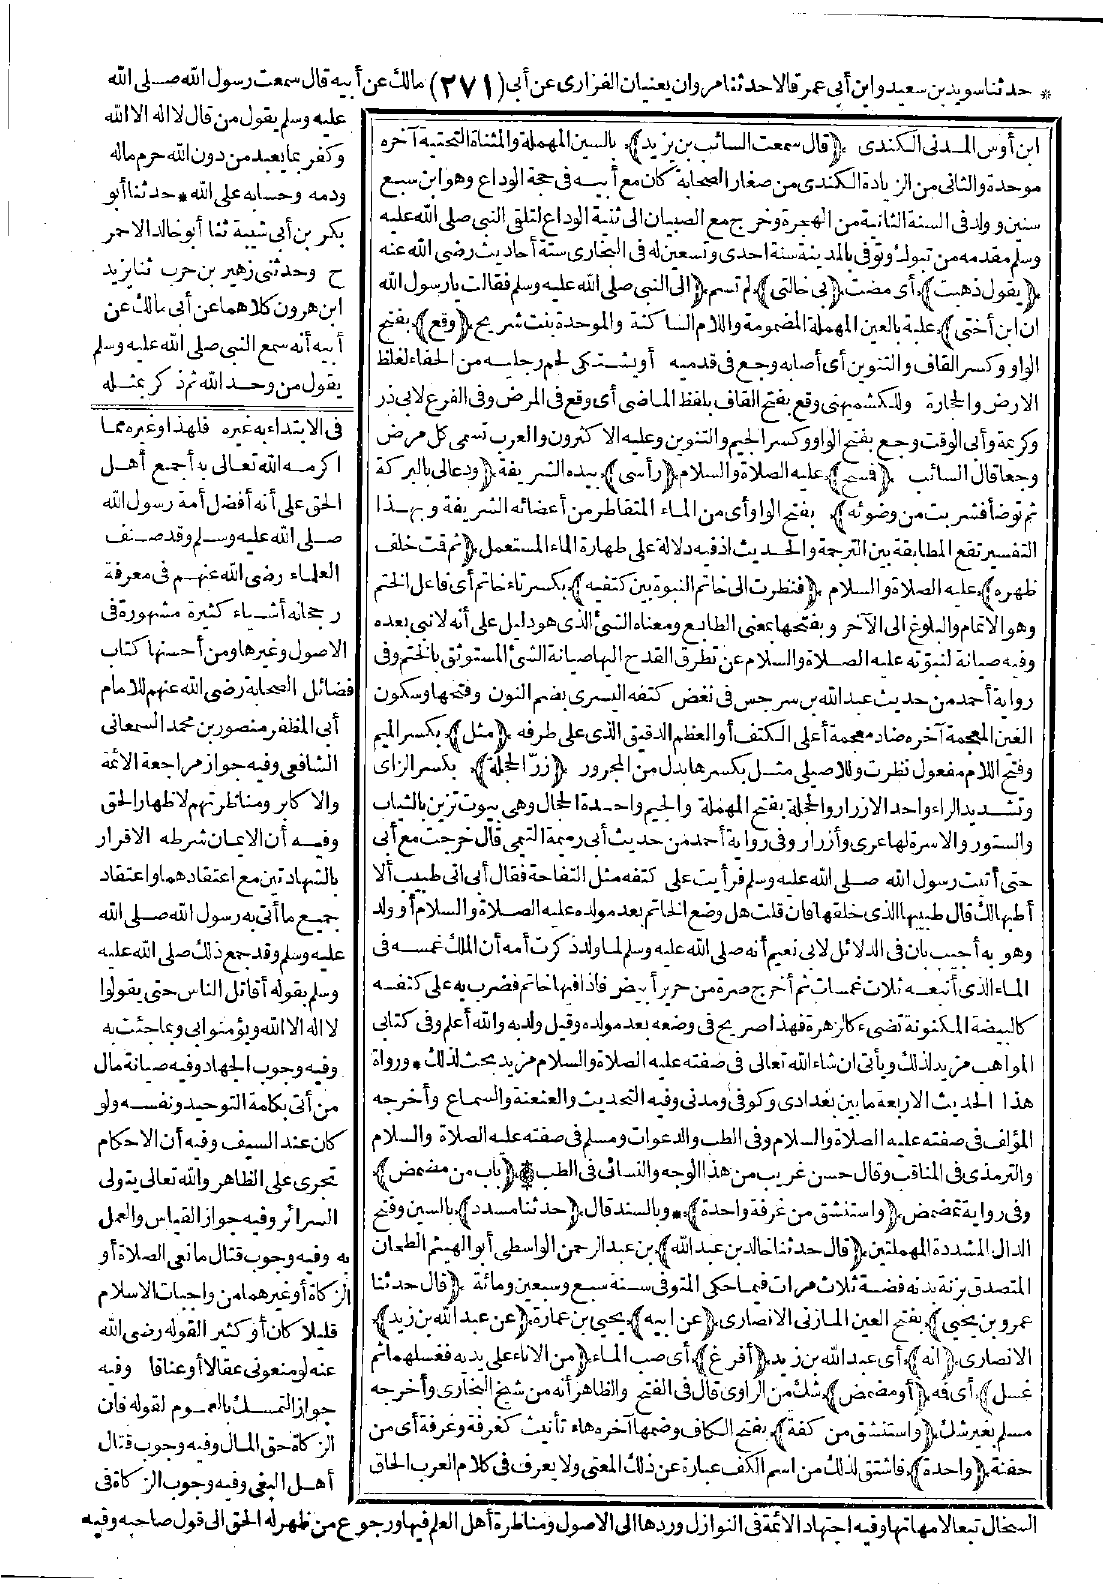 * حدثنا سويد بن سعيد وابن أبي عمر قالا حدثنا مروان يعنيان الفزارى عن أبي (٢٧١) مالك عن أبيه قال سمعت رسول الله صلى الله
عليه وسلم يقول من قال لا اله الا الله
وكفر بما يعبد من دون الله حرم ماله
ودمه وحسابه على الله * حدثنا أبو
بكر بن أبي شيبة ثنا أبو خالد الاحمر
ح وحدثنى زهير بن حرب ثنا يزيد
ابن هرون كلاهما عن أبي مالك عن
أبيه أنه سمع النبي صلى الله عليه وسلم
يقول من وحد الله ثم ذكر بمثله
ابن أوس المدنى الكندى (قال سمعت السائب بن يزيد) بالسين المهملة والمثناة التحتية آخره
موحدة والثانى من الزيادة الكندى من صغار الصحابة كان مع أبيه فى حجة الوداع وهو ابن سبع
سنين وولد فى السنة الثانية من الهجرة وخرج مع الصبيان الى ثنية الوداع لتلقى النبي صلى الله عليه
وسلم مقدمه من تبوك وتوفى بالمدينة سنة احدى وتسعين له فى البخارى ستة أحاديث رضى الله عنه
(يقول ذهبت) أى مضت (بي خالتى) لم تسم (الى النبي صلى الله عليه وسلم فقالت يا رسول الله
ان ابن أختى) علبة بالعين المهملة المضمومة واللام الساكنة والموحدة بنت شريح (وقع) بفتح
الواو وكسر القاف والتنوين أى أصابه وجع فى قدميه أو يشتكى لحم رجليه من الحفاء لغلظ
الارض والحجارة وللكشميهنى وقع بفتح القاف بلفظ الماضى أى وقع فى المرض وفى الفرع لابى ذر
وكريمة وأبى الوقت وجع بفتح الواو وكسر الجيم والتنوين وعليه الاكثرون والعرب تسمى كل مرض
وجعا قال السائب (فمسح) عليه الصلاة والسلام (رأسى) بيده الشريفة (ودعالى بالبركة
ثم توضأ فشربت من وضوئه) بفتح الواو أى من الماء المتقاطر من أعضائه الشريفة وبهذا
التفسير تقع المطابقة بين الترجمة والحديث اذ فيه دلالة على طهارة الماء المستعمل (ثم قمت خلف
ظهره) عليه الصلاة والسلام (فنظرت الى خاتم النبوة بين كتفيه) بكسر تاء خاتم أى فاعل الختم
وهو الاتمام والبلوغ الى الآخر وبفتحها بمعنى الطابع ومعناه الشئ الذى هو دليل على أنه لا نبى بعده
وفيه صيانة لنبوته عليه الصلاة والسلام عن تطرق القدح اليها صيانة الشئ المستوثق بالختم وفى
رواية أحمد من حديث عبد الله بن سرجس فى نغض كتفه اليسرى بضم النون وفتحها وسكون
الغين المعجمة آخره ضاد معجمة أعلى الكتف أو العظم الدقيق الذى على طرفه (مثل) بكسر الميم
وفتح اللام مفعول نظرت وللاصيلى مثل بكسرها بدل من المجرور (زر الحجلة) بكسر الزاى
وتشديد الراء واحد الازرار والحجلة بفتح المهملة والجيم واحدة الحجال وهى بيوت تزين بالثياب
والستور والاسرة لها عرى وأزرار وفى رواية أحمد من حديث أبى رمثة التيمى قال خرجت مع أبى
حتى أتيت رسول الله صلى الله عليه وسلم فرأيت على كتفه مثل التفاحة فقال أبى انى طبيب ألا
أطبها لك قال طبيبها الذى خلقها فان قلت هل وضع الخاتم بعد مولده عليه الصلاة والسلام أو ولد
وهو به أجيب بان فى الدلائل لابى نعيم أنه صلى الله عليه وسلم لما ولد ذكرت أمه أن الملك غمسه فى
الماء الذى أنبعه ثلاث غمسات ثم أخرج صرة من حرير أبيض فاذا فيها خاتم فضرب به على كتفه
كالبيضة المكنونة تضىء كالزهرة فهذا صريح فى وضعه بعد مولده وقيل ولد به والله أعلم وفى كتابى
المواهب مزيد لذلك ويأتى ان شاء الله تعالى فى صفته عليه الصلاة والسلام مزيد بحث لذلك * ورواة
هذا الحديث الاربعة ما بين بغدادى وكوفى ومدنى وفيه التحديث والعنعنة والسماع وأخرجه
المؤلف فى صفته عليه الصلاة والسلام وفى الطب والدعوات ومسلم فى صفته عليه الصلاة والسلام
والترمذى فى المناقب وقال حسن غريب من هذا الوجه والنسائى فى الطب * (باب من مضمض)
وفى رواية تمضمض (واستنشق من غرفة واحدة) * وبالسند قال (حدثنا مسدد) بالسين وفتح
الدال المشددة المهملتين (قال حدثنا خالد بن عبد الله) بن عبد الرحمن الواسطى أبو الهيثم الطحان
المتصدق بزنة بدنه فضة ثلاث مرات فيما حكى المتوفى سنة سبع وسبعين ومائة (قال حدثنا
عمرو بن يحيى) بفتح العين المازنى الانصارى (عن ابيه) يحيى بن عمارة (عن عبد الله بن زيد)
الانصارى (انه) أى عبد الله بن زيد (أفرغ) أى صب الماء (من الاناء على يديه فغسلهما ثم
غسل) أى فه (أو مضمض) شك من الراوى قال فى الفتح والظاهر أنه من شيخ البخارى وأخرجه
مسلم بغير شك (واستنشق من كفة) بفتح الكاف وضمها آخره هاء تأنيث كغرفة وغرفة أى من
حفنة (واحدة) فاشتق لذلك من اسم الكف عبارة عن ذلك المعنى ولا يعرف فى كلام العرب الحاق
فى الابتداء به غيره فلهذا وغيره مما
اكرمه الله تعالى به أجمع أهل
الحق على أنه أفضل أمة رسول الله
صلى الله عليه وسلم وقد صنف
العلماء رضى الله عنهم فى معرفة
رجحانه أشياء كثيرة مشهورة فى
الاصول وغيرها ومن أحسنها كتاب
فضائل الصحابة رضى الله عنهم للامام
أبى المظفر منصور بن محمد السمعانى
الشافعى وفيه جواز مراجعة الائمة
والاكابر ومناظرتهم لاظهار الحق
وفيه أن الايمان شرطه الاقرار
بالشهادتين مع اعتقادهما واعتقاد
جميع ما أتى به رسول الله صلى الله
عليه وسلم وقد جمع ذلك صلى الله عليه
وسلم بقوله أقاتل الناس حتى يقولوا
لا اله الا الله ويؤمنوا بى وبما جئت به
وفيه وجوب الجهاد وفيه صيانة مال
من أتى بكلمة التوحيد ونفسه ولو
كان عند السيف وفيه أن الاحكام
تجرى على الظاهر والله تعالى يتولى
السرائر وفيه جواز القياس والعمل
به وفيه وجوب قتال مانعى الصلاة أو
الزكاة أو غيرهما من واجبات الاسلام
قليلا كان أو كثيرا لقوله رضى الله
عنه لو منعونى عقالا أو عناقا وفيه
جواز التمسك بالعموم لقوله فان
الزكاة حق المال وفيه وجوب قتال
أهل البغى وفيه وجوب الزكاة فى
السخال تبعا لامهاتها وفيه اجتهاد الائمة فى النوازل وردها الى الاصول ومناظرة أهل العلم فيها ورجوع من ظهر له الحق الى قول صاحبه وفيه